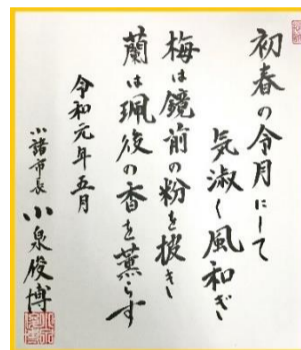 初春の令月にして
気淑く風和ぎ
梅は鏡前の粉を披き
蘭は珮後の香を薫らす
令和元年五月
小諸市長 小泉俊博